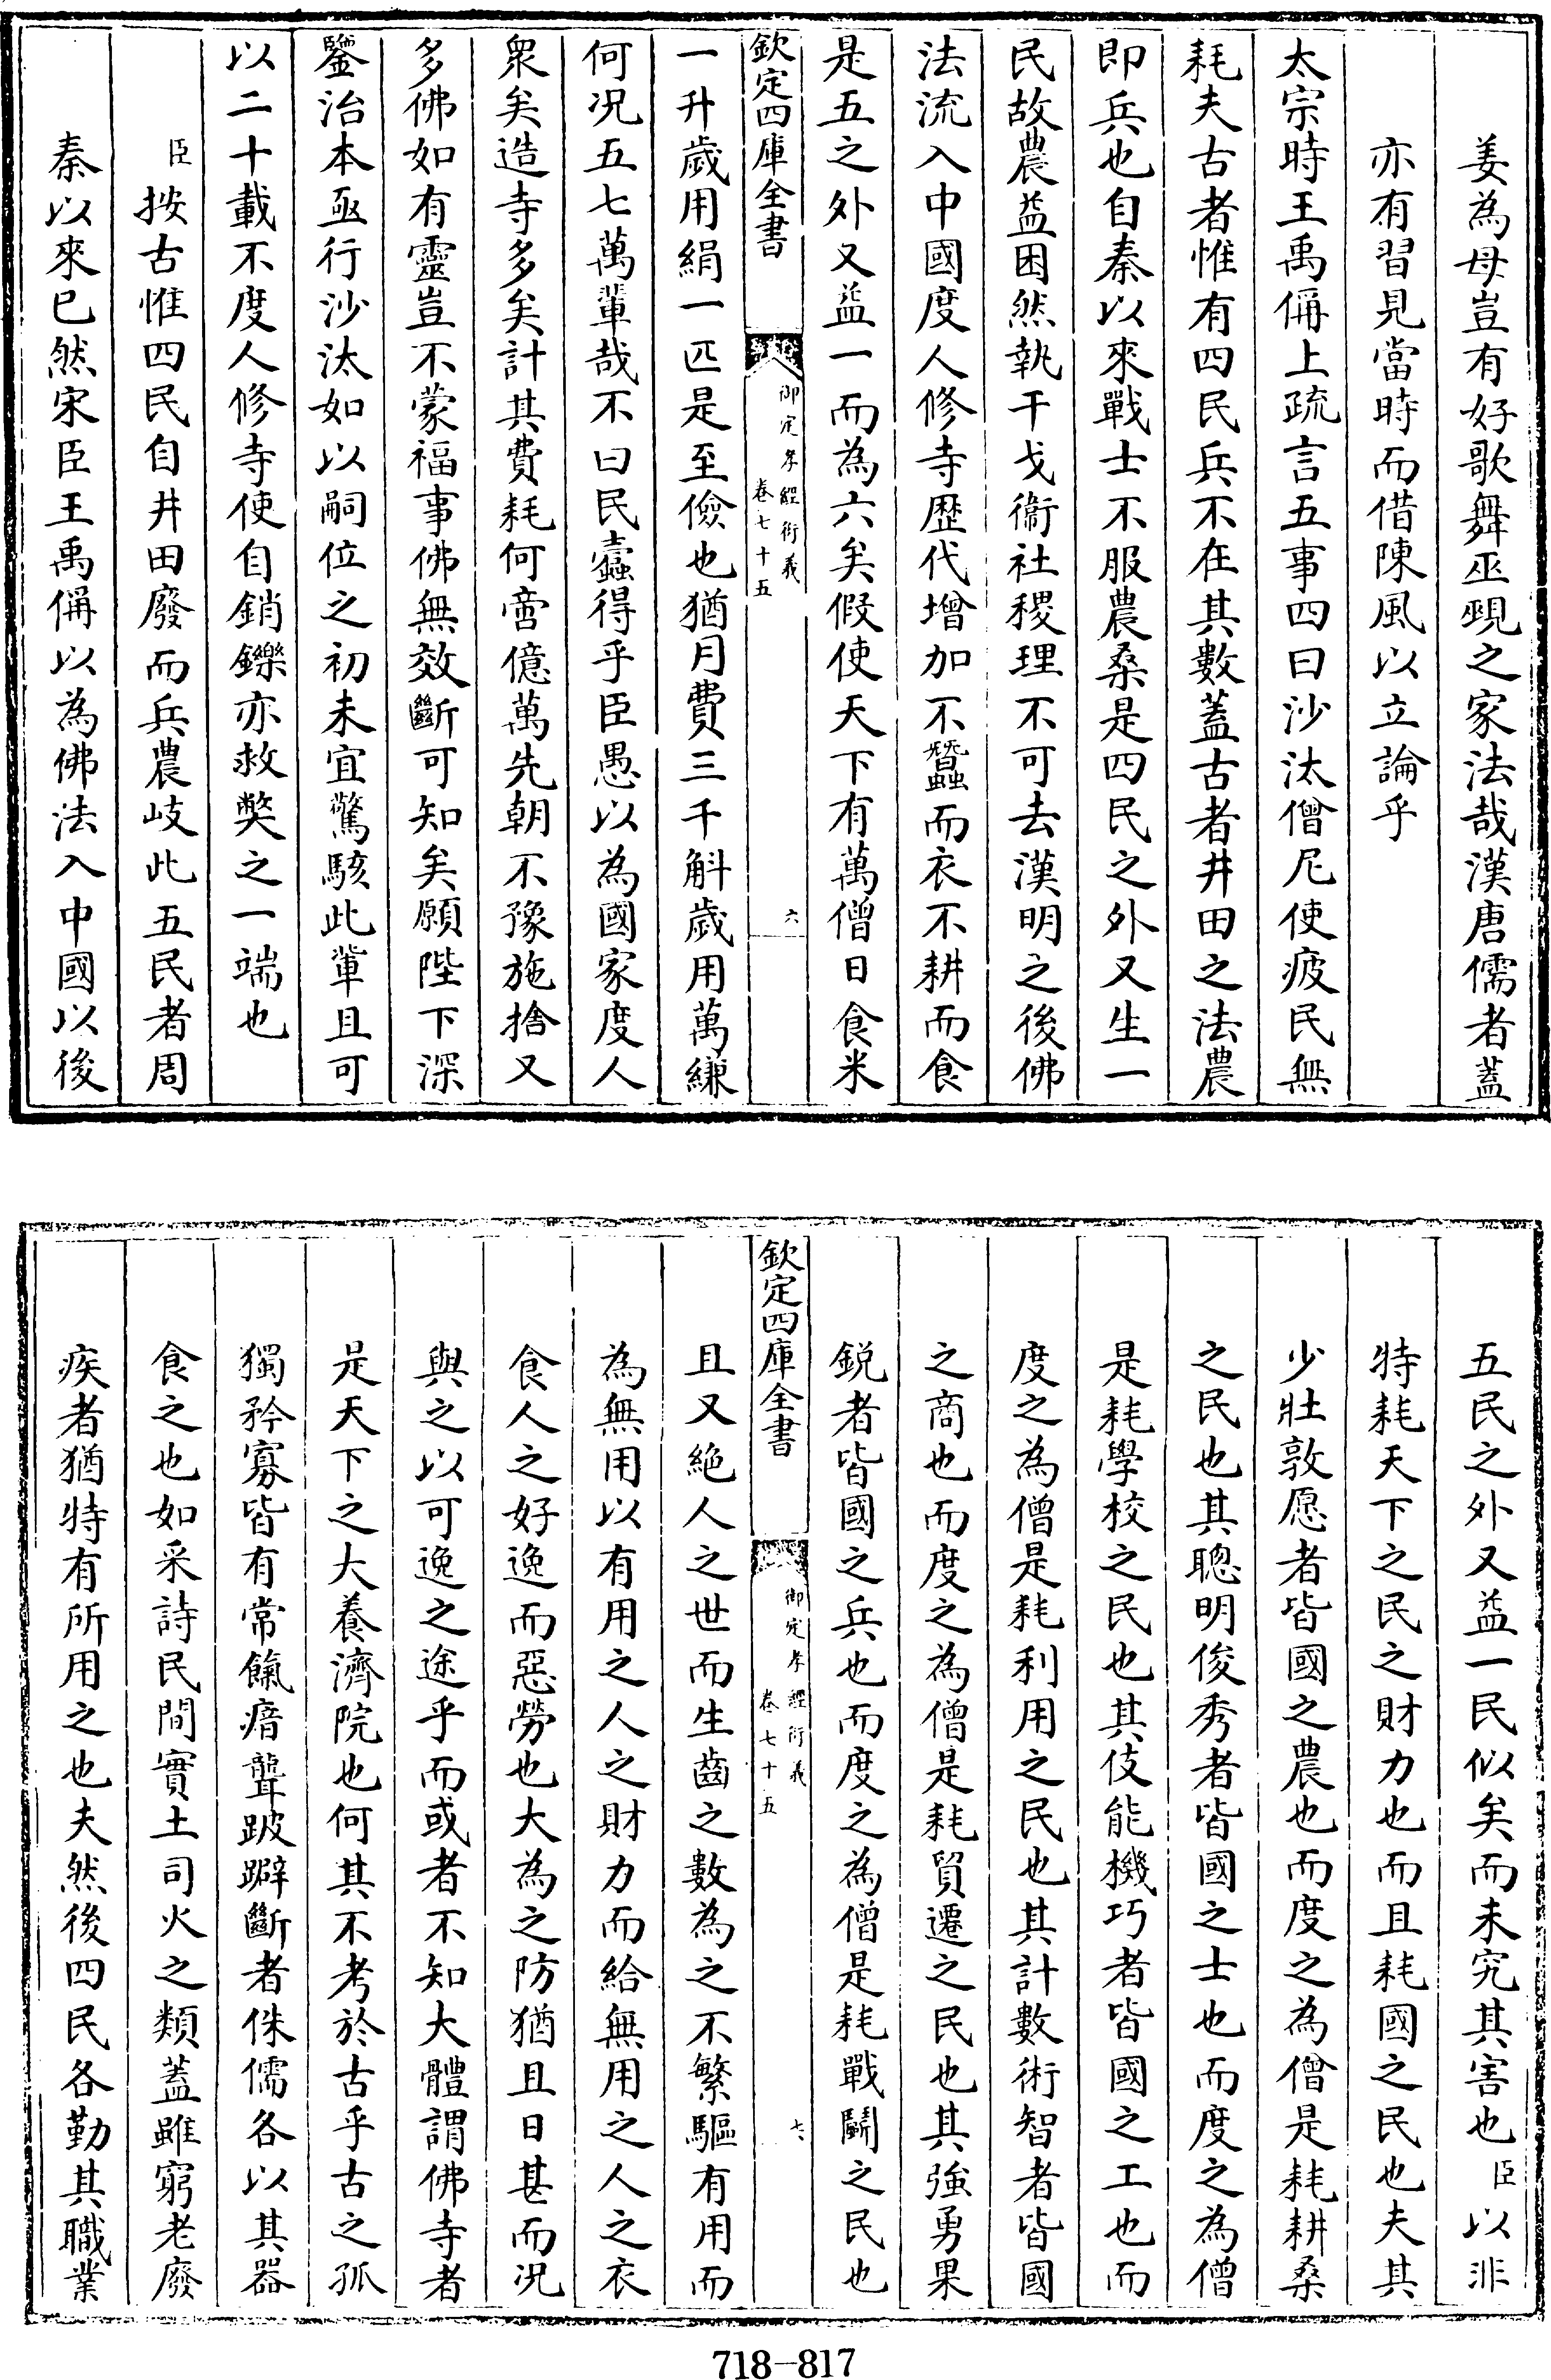 姜為母豈有好歌舞巫覡之家法哉漢唐儒者蓋
亦有習見當時而借陳風以立論乎
太宗時王禹偁上疏言五事四曰沙汰僧尼使疲民無
耗夫古者惟有四民兵不在其數蓋古者井田之法農
即兵也自秦以來戰士不服農桑是四民之外又生一
民故農益困然執干戈衞社稷理不可去漢明之後佛
法流入中國度人修寺歷代增加不蠶而衣不耕而食
是五之外又益一而為六矣假使天下有萬僧日食米
欽定四庫全書
御定孝經衍義
卷七十五
六
一升歲用絹一匹是至儉也猶月費三千斛歲用萬縑
何况五七萬輩哉不曰民蠹得乎臣愚以為國家度人
衆矣造寺多矣計其費耗何啻億萬先朝不豫施捨又
多佛如有靈豈不蒙福事佛無效斷可知矣願陛下深
鑒治本亟行沙汰如以嗣位之初未宜驚駭此輩且可
以二十載不度人修寺使自銷鑠亦救獘之一端也
臣按古惟四民自井田廢而兵農岐此五民者周
秦以來已然宋臣王禹偁以為佛法入中國以後
五民之外又益一民似矣而未究其害也臣以非
特耗天下之民之財力也而且耗國之民也夫其
少壯敦愿者皆國之農也而度之為僧是耗耕桑
之民也其聰明俊秀者皆國之士也而度之為僧
是耗學校之民也其伎能機巧者皆國之工也而
度之為僧是耗利用之民也其計數術智者皆國
之商也而度之為僧是耗貿遷之民也其強勇果
鋭者皆國之兵也而度之為僧是耗戰鬬之民也
欽定四庫全書
御定孝經衍義
卷七十五
七
且又絶人之世而生齒之數為之不繁驅有用而
為無用以有用之人之財力而給無用之人之衣
食人之好逸而惡勞也大為之防猶且日甚而况
與之以可逸之途乎而或者不知大體謂佛寺者
是天下之大養濟院也何其不考於古乎古之孤
獨矜寡皆有常餼瘖聾跛躃斷者侏儒各以其器
食之也如采詩民間實土司火之類蓋雖窮老廢
疾者猶特有所用之也夫然後四民各勤其職業
718-817